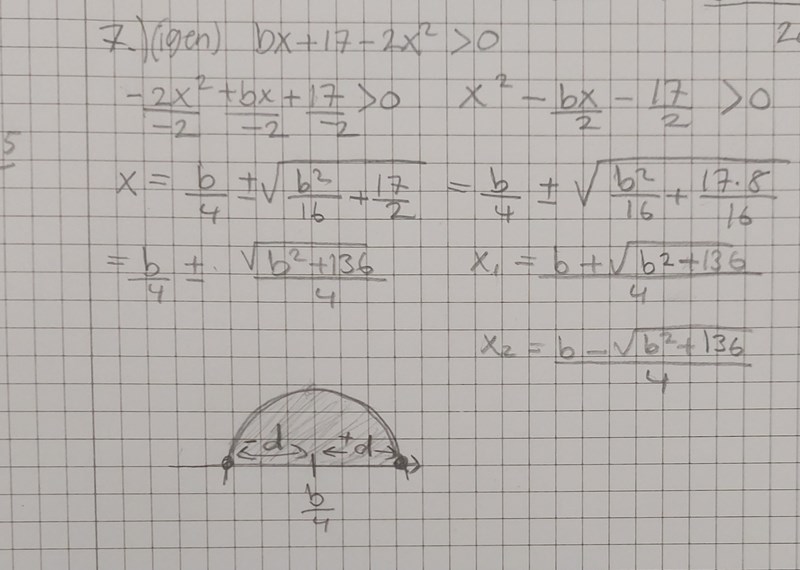 7.) (igen) bx+17-2x² >0
-2x²/-2 +bx/-2 + 17/-2 >0 x² - bx/2 - 17/2 >0
5
x = b/4 ± √(b²/16 + 17/2) = b/4 ± √(b²/16 + 17·8/16)
= b/4 ± √(b²+136)/4 x₁ = (b + √(b²+136))/4
x₂ = (b - √(b²+136))/4
-d +d
b/4